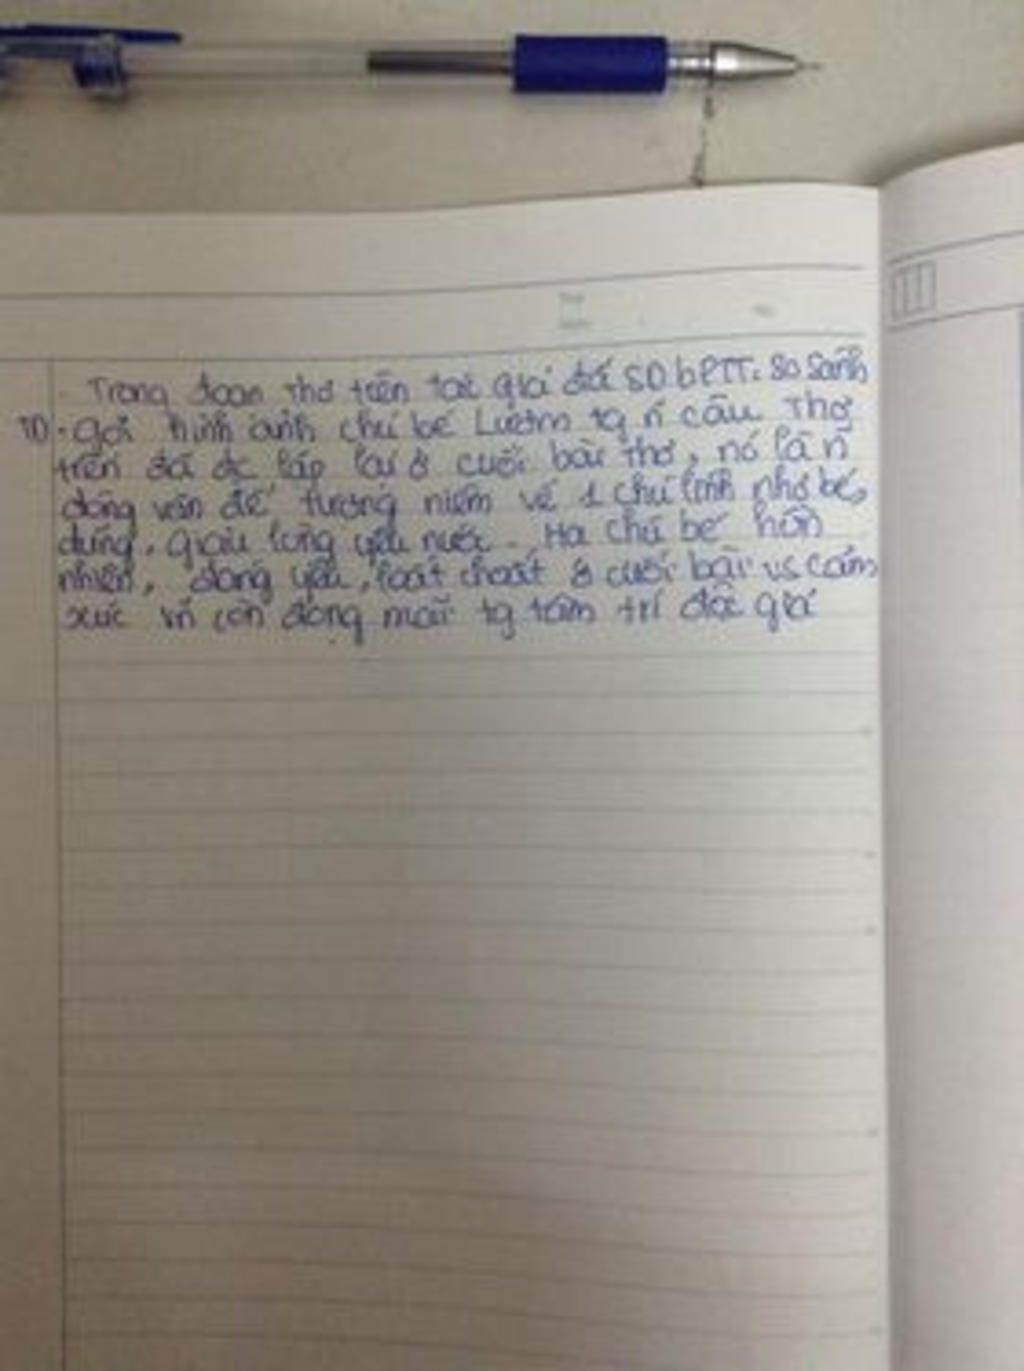 - Trong đoạn thơ trên tác giả đã SD bPTT: So Sánh
TD - gợi hình ảnh chú bé Lượm tg n câu Thơ
trên đã đc lặp lại ở cuối bài thơ, nó là n
dòng văn để tưởng niệm về 1 chú lính nhỏ bé,
dũng, giàu lòng yêu nước. Ha chú bé hồn
nhiên, đáng yêu, loắt choắt ở cuối bài vs cảm
xúc vn còn đọng mãi tg tâm trí độc giả